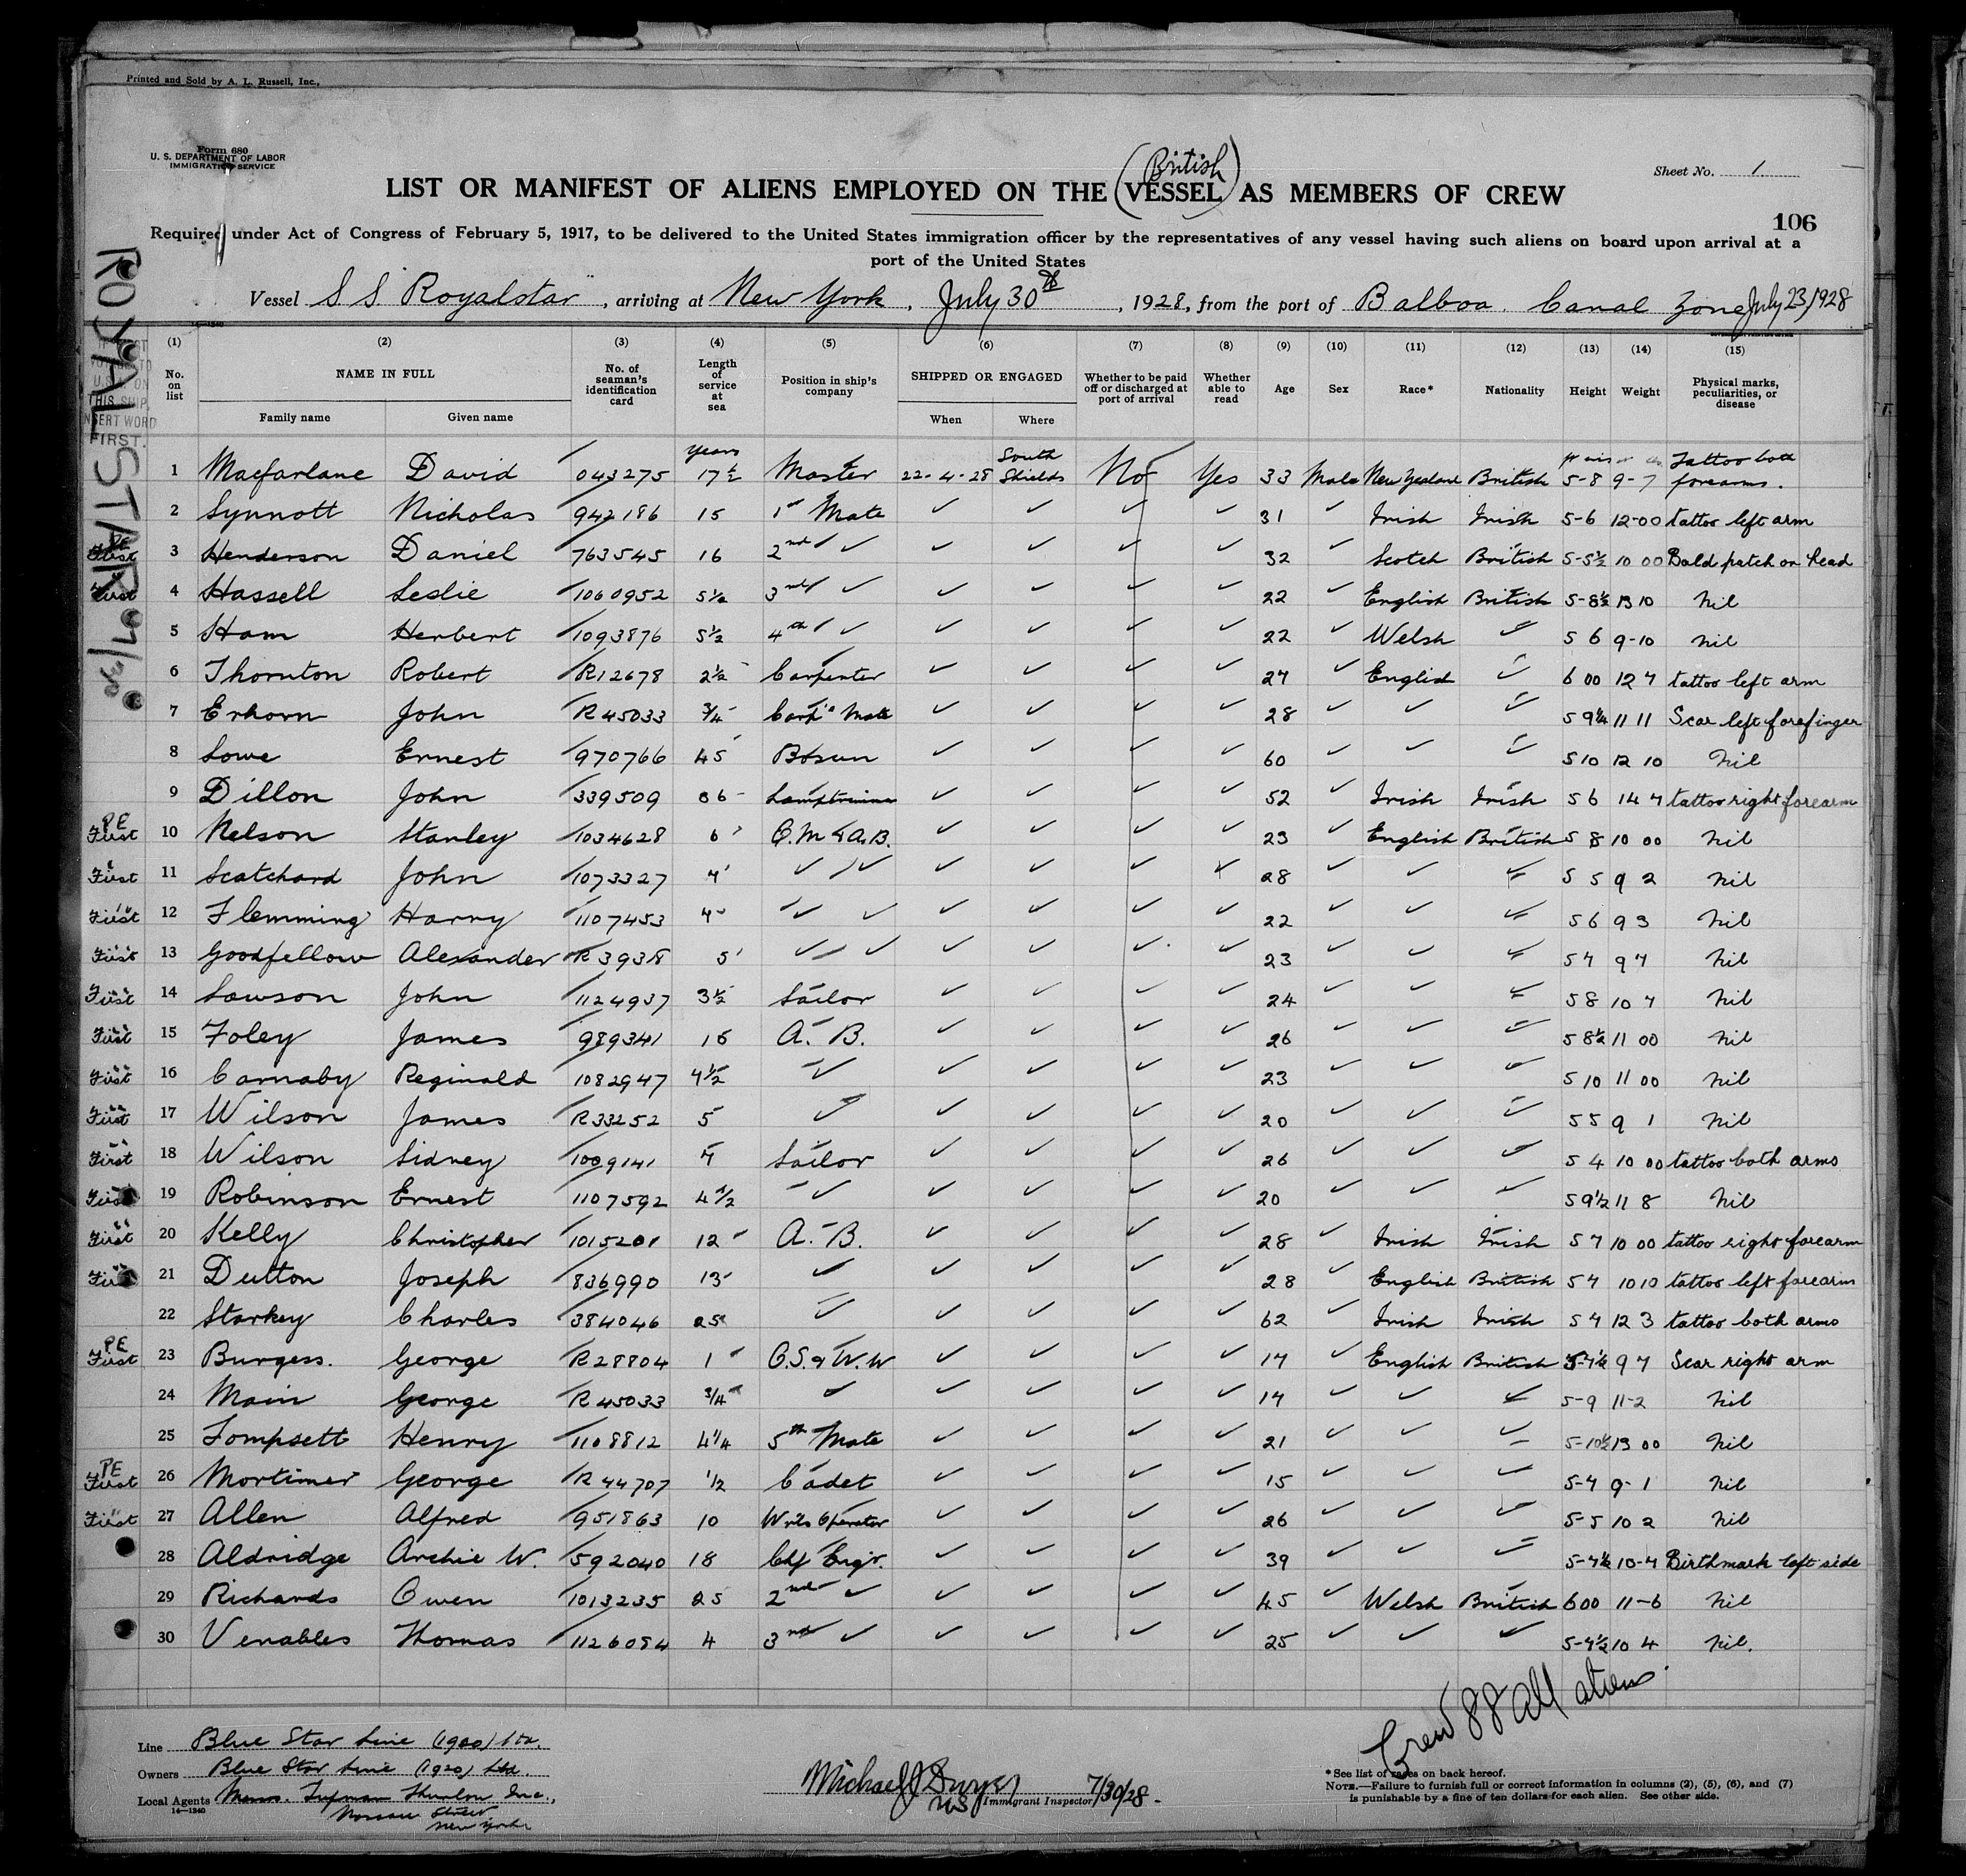 Printed and Sold by A. L. Russell, Inc.,
Form 680
U. S. DEPARTMENT OF LABOR
IMMIGRATION SERVICE
Sheet No. 1
(British)
LIST OR MANIFEST OF ALIENS EMPLOYED ON THE VESSEL AS MEMBERS OF CREW
106
Required under Act of Congress of February 5, 1917, to be delivered to the United States immigration officer by the representatives of any vessel having such aliens on board upon arrival at a
port of the United States
Vessel S S. Royalstar, arriving at New York, July 30th, 1928, from the port of Balboa. Canal Zone July 23/1928
ROYAL STAR 7/30
THIS SHIP, INSERT WORD FIRST.
(1) (2) (3) (4) (5) (6) (7) (8) (9) (10) (11) (12) (13) (14) (15)
No. on list
NAME IN FULL
Family name
Given name
No. of seaman's identification card
Length of service at sea
Position in ship's company
SHIPPED OR ENGAGED
When
Where
Whether to be paid off or discharged at port of arrival
Whether able to read
Age
Sex
Race*
Nationality
Height
Weight
Physical marks, peculiarities, or disease
1 Macfarlane David 043275 Years 17½ Master 22-4-28 South Shields No Yes 33 Male New Zealand British 5-8 9-7 Tattoo both forearms.
2 Synnott Nicholas 942186 15 1st Mate ✓ ✓ ✓ ✓ 31 ✓ Irish Irish 5-6 12-00 tattoo left arm
PE First 3 Henderson Daniel 763545 16 2nd ✓ ✓ ✓ ✓ ✓ 32 ✓ Scotch British 5-5½ 10 00 Bald patch on head
First 4 Hassell Leslie 1060952 5½ 3rd ✓ ✓ ✓ ✓ ✓ 22 ✓ English British 5-8½ 13 10 Nil
5 Ham Herbert 1093876 5½ 4th ✓ ✓ ✓ ✓ ✓ 22 ✓ Welsh ✓ 5 6 9-10 nil
6 Thornton Robert R12678 2½ Carpenter ✓ ✓ ✓ ✓ 27 ✓ English ✓ 6 00 12 7 tattoo left arm
7 Erhorn John R45033 3/4 Carp's Mate ✓ ✓ ✓ ✓ 28 ✓ ✓ ✓ 5 9¼ 11 11 Scar left forefinger
8 Lowe Ernest 970766 45 Bosun ✓ ✓ ✓ ✓ 60 ✓ ✓ ✓ 5 10 12 10 Nil
9 Dillon John 339509 36 Lamptrimmer ✓ ✓ ✓ ✓ 52 ✓ Irish Irish 5 6 14 7 tattoo right forearm
PE First 10 Nelson Stanley 1034628 6 Q.M & A.B. ✓ ✓ ✓ ✓ 23 ✓ English British 5 8 10 00 Nil
First 11 Scatchard John 1073327 7 ✓ ✓ ✓ ✓ ✓ ✓ 28 ✓ ✓ ✓ 5 5 9 2 Nil
First 12 Flemming Harry 1107453 4 ✓ ✓ ✓ ✓ ✓ ✓ 22 ✓ ✓ ✓ 5 6 9 3 Nil
First 13 Goodfellow Alexander R 3938 5 ✓ ✓ ✓ ✓ ✓ ✓ 23 ✓ ✓ ✓ 5 7 9 7 Nil
First 14 Lawson John 1124937 3½ Sailor ✓ ✓ ✓ ✓ 24 ✓ ✓ ✓ 5 8 10 7 Nil
First 15 Foley James 989341 16 A. B. ✓ ✓ ✓ ✓ 26 ✓ ✓ ✓ 5 8½ 11 00 Nil
First 16 Carnaby Reginald 1082947 4½ ✓ ✓ ✓ ✓ ✓ 23 ✓ ✓ ✓ 5 10 11 00 Nil
First 17 Wilson James R33252 5 ✓ ✓ ✓ ✓ ✓ 20 ✓ ✓ ✓ 5 5 9 1 Nil
First 18 Wilson Sidney 1009141 7 Sailor ✓ ✓ ✓ ✓ 26 ✓ ✓ ✓ 5 4 10 00 tattoo both arms
First 19 Robinson Ernest 1107592 4½ ✓ ✓ ✓ ✓ ✓ 20 ✓ ✓ ✓ 5 9½ 11 8 Nil
First 20 Kelly Christopher 1015201 12 A. B. ✓ ✓ ✓ ✓ 28 ✓ Irish Irish 5 7 10 00 tattoo right forearm
First 21 Dutton Joseph 836990 13 ✓ ✓ ✓ ✓ ✓ 28 ✓ English British 5 7 10 10 tattoo left forearm
22 Starkey Charles 384046 25 ✓ ✓ ✓ ✓ ✓ 62 ✓ Irish Irish 5 7 12 3 tattoo both arms
PE First 23 Burgess. George R28804 1 O.S. & W.W ✓ ✓ ✓ ✓ 17 ✓ English British 5-7½ 9 7 Scar right arm
24 Main George R45033 3/4 ✓ ✓ ✓ ✓ ✓ 17 ✓ ✓ ✓ 5-9 11-2 Nil
25 Tompsett Henry 1108812 4¼ 5th Mate ✓ ✓ ✓ ✓ 21 ✓ ✓ ✓ 5-10½ 13 00 Nil
PE First 26 Mortimer George R44707 ½ Cadet ✓ ✓ ✓ ✓ 15 ✓ ✓ ✓ 5-4 9-1 Nil
First 27 Allen Alfred 951863 10 W/ls Operator ✓ ✓ ✓ ✓ 26 ✓ ✓ ✓ 5-5 10 2 Nil
28 Aldridge Archie W. 592040 18 Chf Engr. ✓ ✓ ✓ ✓ 39 ✓ ✓ ✓ 5-7½ 10-4 Birthmark left side
29 Richards Owen 1013235 25 2nd ✓ ✓ ✓ ✓ ✓ 45 ✓ Welsh British 6 00 11-6 Nil
30 Venables Thomas 1126084 4 3rd ✓ ✓ ✓ ✓ ✓ 25 ✓ ✓ ✓ 5-7½ 10 4 Nil.
Crew 88 All aliens.
Line Blue Star Line (1920) Ltd.
Owners Blue Star Line (1920) Ltd.
Local Agents Messrs. Thurlow Inc.,
14—1240
Nassau Street
New York
Michael J Dwyer
US Immigrant Inspector 7/30/28.
*See list of races on back hereof.
NOTE.—Failure to furnish full or correct information in columns (2), (5), (6), and (7)
is punishable by a fine of ten dollars for each alien. See other side.